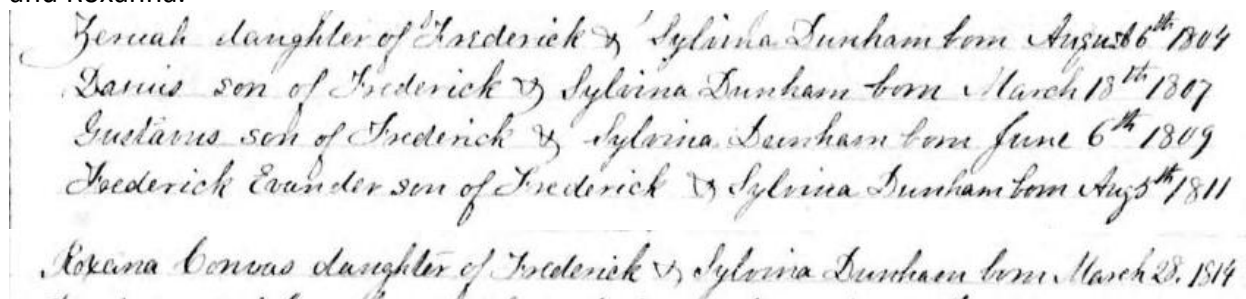 and Roxanna.
Zeruah daughter of Frederick & Sylvina Dunham born August 6th 1804
Darius son of Frederick & Sylvina Dunham born March 18th 1807
Gustavus son of Frederick & Sylvina Dunham born June 6th 1809
Frederick Evander son of Frederick & Sylvina Dunham born Aug 5th 1811
Roxana daughter of Frederick & Sylvina Dunham born March 28. 1814